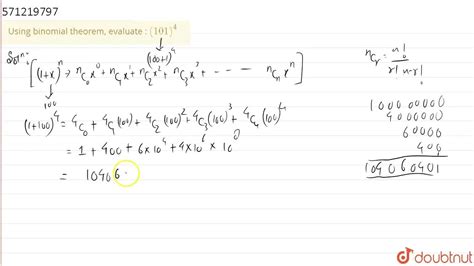 571219797
Using binomial theorem, evaluate : (101)^4
(100+1)^4
Solⁿ [(1+x)^n → nC0 x^0 + nC1 x^1 + nC2 x^2 + nC3 x^3 + - - - - nCn x^n]
100
(1+100)^4 = 4C0 + 4C1 (100) + 4C2 (100)^2 + 4C3 (100)^3 + 4C4 (100)^4
= 1 + 400 + 6×10^4 + 4×10^6 × 10^8
= 10406
nCr = n! / r! n-r!
1 000 00000
4 000000
60000
400
104060401
doubtnut